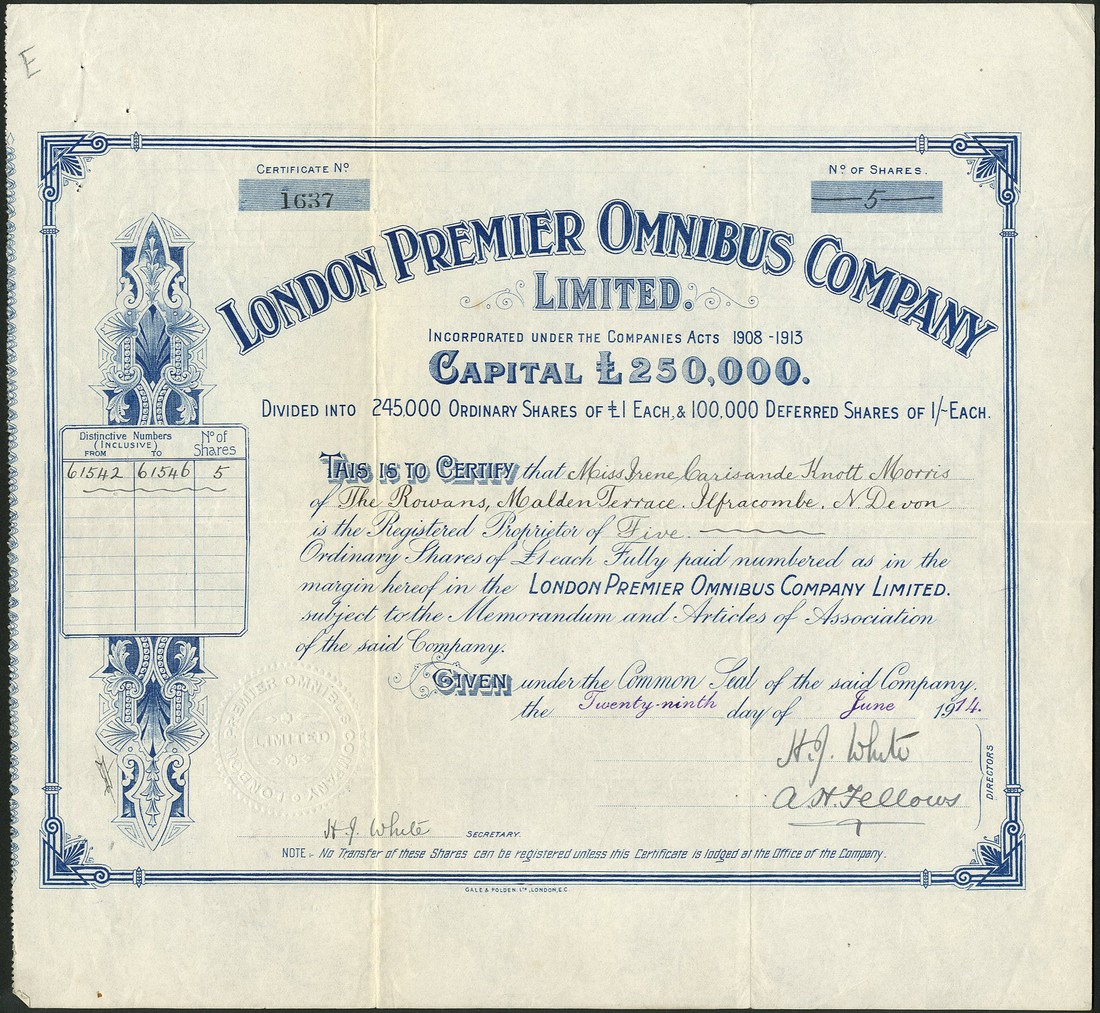 E
CERTIFICATE Nº
1637
Nº OF SHARES.
5
LONDON PREMIER OMNIBUS COMPANY
LIMITED.
INCORPORATED UNDER THE COMPANIES ACTS 1908-1913
CAPITAL £250,000.
DIVIDED INTO 245,000 ORDINARY SHARES OF £1 EACH, & 100,000 DEFERRED SHARES OF 1/- EACH.
DISTINCTIVE NUMBERS
(INCLUSIVE)
FROM TO
Nº OF SHARES
61542 61546 5
THIS IS TO CERTIFY that Miss Irene Carisande Knott Morris
of The Rowans, Malden Terrace, Ilfracombe, N. Devon
is the Registered Proprietor of Five.
Ordinary Shares of £1 each Fully paid numbered as in the
margin hereof in the LONDON PREMIER OMNIBUS COMPANY LIMITED.
subject to the Memorandum and Articles of Association
of the said Company.
GIVEN under the Common Seal of the said Company.
the Twenty-ninth day of June 1914.
LONDON PREMIER OMNIBUS COMPANY
LIMITED
H. J. White
A H Fellows
DIRECTORS
H. J. White SECRETARY.
NOTE:- No Transfer of these Shares can be registered unless this Certificate is lodged at the Office of the Company.
GALE & POLDEN, LTD, LONDON, E.C.